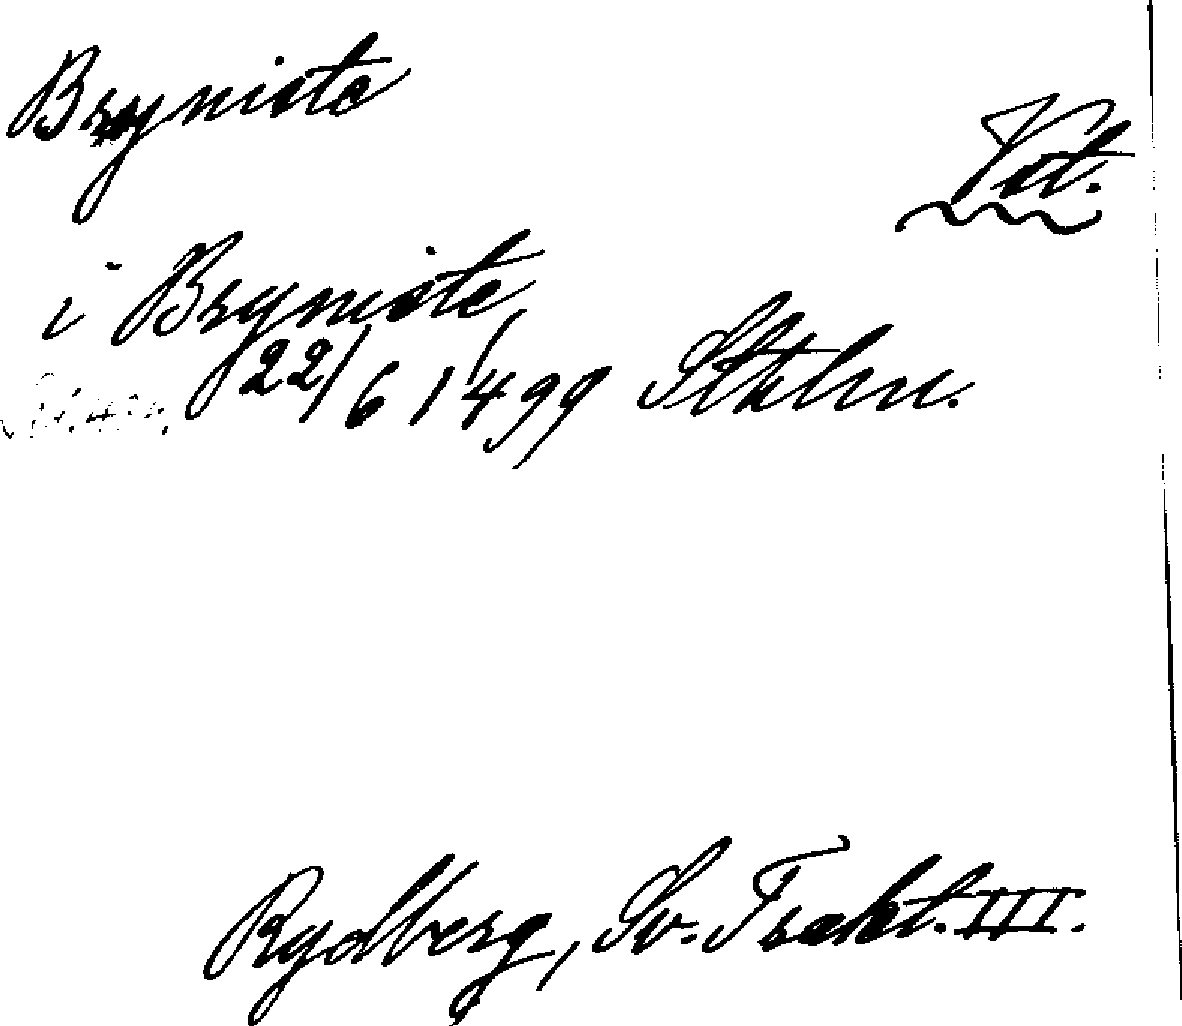 Brynista
Vät.
i Bryniste
22/6 1499 Sthlm.
Rydberg, Sv. Trakt. III.